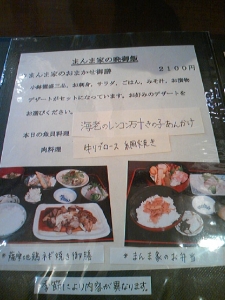 まんま家の晩御飯
まんま家のおまかせ御膳 2100円
小鉢前菜三品、お刺身、サラダ、ごはん、みそ汁、お漬物
デザートがセットになっています。お好みのデザートを
お選びください。
本日の魚貝料理 海老のレンコンすりきの子あんかけ
肉料理 牛リブロース 焼き
地鶏ネギ焼き御膳
まんま家のお弁当
季節により内容が異なります。